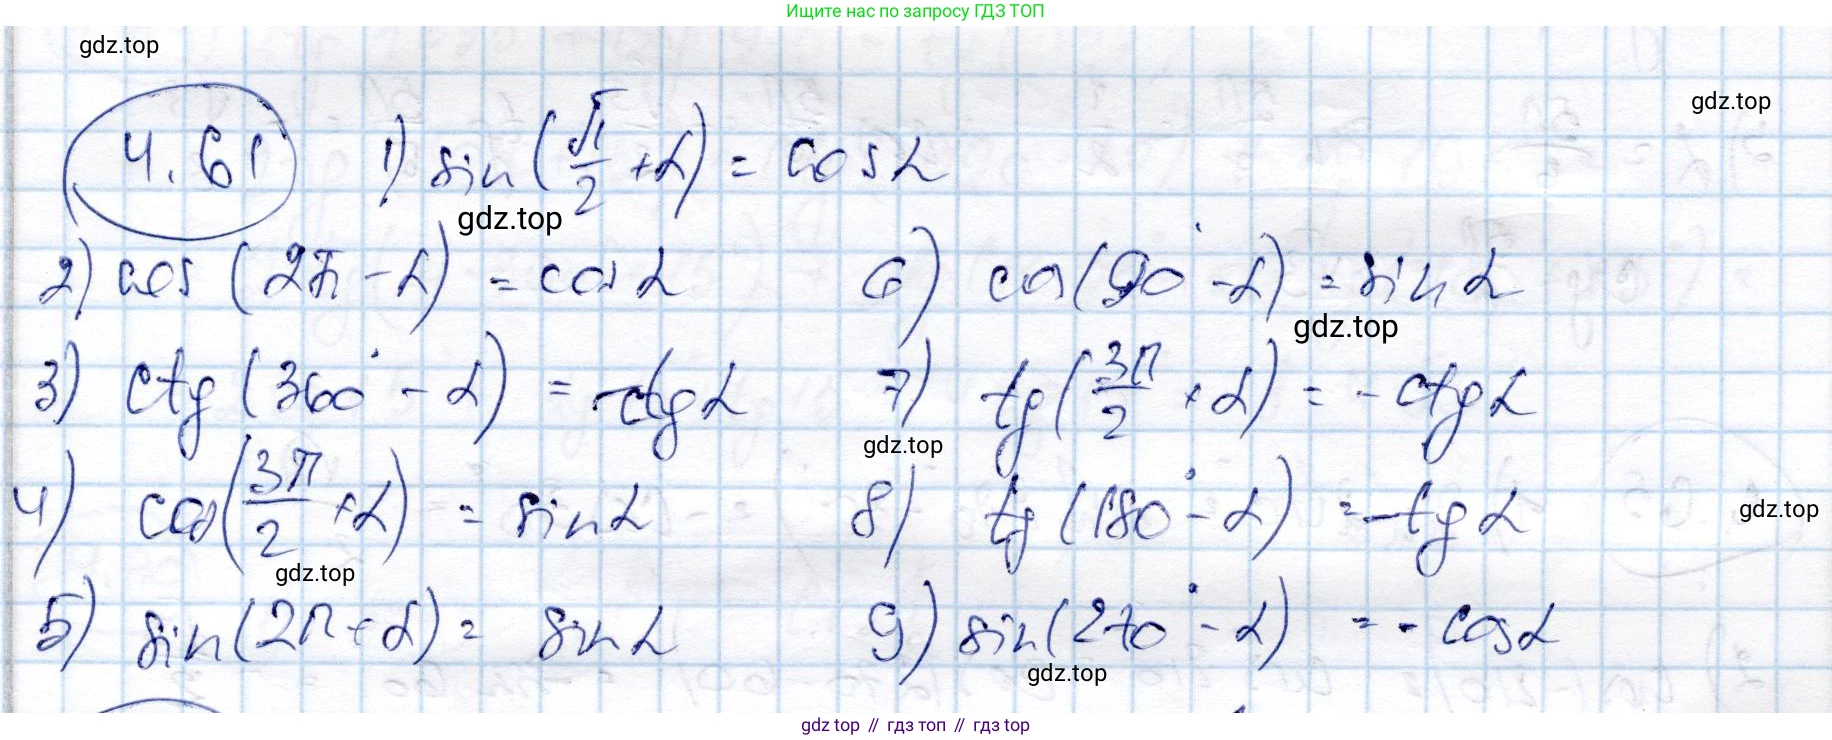 Ищите нас по запросу ГДЗ ТОП
gdz.top
gdz.top
4.61 1) sin(π/2 + α) = cos α
gdz.top
2) cos (2π - α) = cos α 6) cos(90° - α) = sin α
gdz.top
3) ctg (360° - α) = -ctg α 7) tg(3π/2 + α) = - ctg α
gdz.top
4) cos(3π/2 + α) = sin α 8) tg(180° - α) = -tg α
gdz.top
gdz.top
5) sin(2π + α) = sin α 9) sin(270° - α) = - cos α
gdz.top
gdz top // гдз топ // гдз top